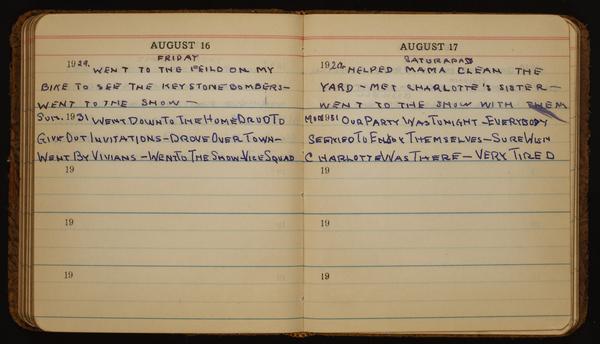 AUGUST 16
FRIDAY
1929. WENT TO THE FEILD ON MY
BIKE TO SEE THE KEYSTONE BOMBERS—
WENT TO THE SHOW —
SUN. 1931 WENT DOWN TO THE HOME TO
GIVE OUT INVITATIONS — DROVE OVER TOWN —
WENT BY VIVIANS — WENT TO THE SHOW VICE SQUAD
19
19
AUGUST 17
SATURDAY
1929 HELPED MAMA CLEAN THE
YARD — MET CHARLOTTE'S SISTER —
WENT TO THE SHOW WITH THEM
MON 1931 OUR PARTY WAS TONIGHT — EVERYBODY
SEEMED TO ENJOY THEMSELVES — SURE WISH
CHARLOTTE WAS THERE — VERY TIRED
19
19